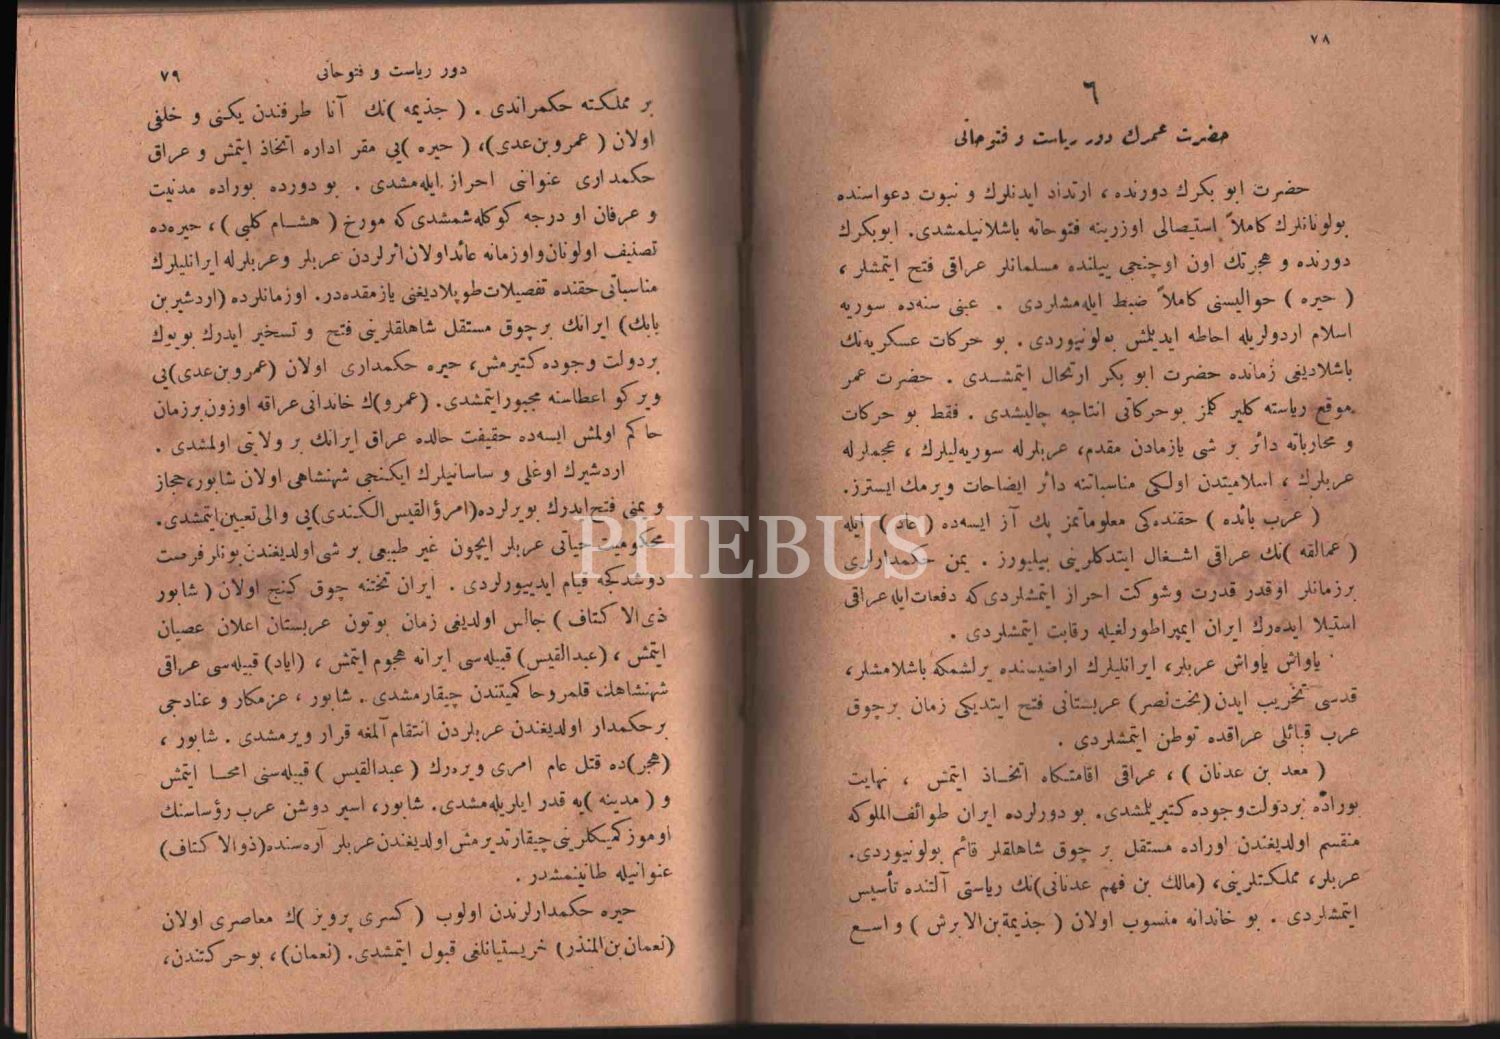 ٧٨
٦
حضرت عمرك دور ریاست و فتوحاتی
حضرت ابو بکرك دورنده ، ارتداد ایدنلرك و نبوت دعواسنده
بولونانلرك کاملاً استیصالی اوزرینه فتوحاته باشلانیلمشدی. ابوبکرك
دورنده و هجرتك اون اوچنجی ییلنده مسلمانلر عراقی فتح ایتمشلر ،
( حیره ) حوالیسنی کاملاً ضبط ایله‌مشلردی . عینی سنه‌ده سوریه
اسلام اردولریله احاطه ایدیلمش بولونیوردی . بو حرکات عسکریه‌نك
باشلادیغی زمانده حضرت ابو بکر ارتحال ایتمشـدی . حضرت عمر
موقع ریاسته کلیر کلمز بوحرکاتی انتاجه چالیشدی . فقط بو حرکات
و محارباته دائر بر شی یازمادن مقدم، عربلرله سوریه‌لیلرك ، عجملرله
عربلرك ، اسلامیتدن اولکی مناسباتنه دائر ایضاحات ویرمك ایسترز.
( عرب بائده ) حقنده‌کی معلوماتمز پك آز ایسه‌ده ( عاد ) ایله
( عمالقه )نك عراقی اشـغال ایتدکلرینی بیلیورز . یمن حکمدارلری
برزمانلر اوقدر قدرت وشوکت احراز ایتمشلردی‌که دفعات‌ایله عراقی
استیلا ایده‌رك ایران ایمپراطورلغیله رقابت ایتمشلردی .
یاواش یاواش عربلر، ایرانلیلرك اراضیسنده یرلشمکه باشلامشلر،
قدسی تخریب ایدن (بخت‌نصر) عربستانی فتح ایتدیکی زمان برچوق
عرب قبائلی عراقده توطن ایتمشلردی .
( معد بن عدنان ) ، عراقی اقامتـکاه اتخـاذ ایتمش ، نهایت
بوراده بردولت‌وجوده کتیریلمشدی. بودورلرده ایران طوائف‌الملوکه
منقسم اولدیغندن اوراده مستقل بر چوق شاهلقلر قائم بولونیوردی.
عربلر، مملکتلرینی، (مالك بن فهم عدنانی)نك ریاستی آلتنده تأسیس
ایتمشلردی . بو خاندانه منسوب اولان ( جذیمةبن‌الابرش ) واسـع
دور ریاست و فتوحاتی
٧٩
بر مملکته حکمراندی . ( جذیمه )نك آنا طرفندن یکنی و خلفی
اولان ( عمروبن‌عدی)، ( حیره )یی مقر اداره اتخاذ ایتمش و عراق
حکمداری عنوانی احراز ایله‌مشدی . بودورده بوراده مدنیت
و عرفان او درجه کوکله‌شمشدی‌که مورخ ( هشـام کلبی ) ، حیره‌ده
تصنیف اولونان‌واوزمانه عائداولان‌اثرلردن عربلر وعربلرله ایرانلیلرك
مناسباتی حقنده تفصیلات‌طوپلادیغنی یازمقده‌در. اوزمانلرده (اردشیربن
بابك) ایرانك برچوق مستقل شاهلقلرینی فتح و تسخیر ایدرك بویوك
بردولت وجوده‌کتیرمش، حیره حکمداری اولان (عمروبن‌عدی)یی
ویرکو اعطاسنه مجبورایتمشدی. (عمرو)ك خاندانی‌عراقه اوزون‌برزمان
حاکم اولمش ایسه‌ده حقیقت حالده عراق ایرانك بر ولایتی اولمشدی .
اردشیرك اوغلی و ساسانیلرك ایکنجی شهنشاهی اولان شاپور،حجاز
و یمنی فتح‌ایدرك بویرلرده(امرؤالقیس‌الکندی)یی والی‌تعیین‌ایتمشدی.
محکومیت‌حیاتی عربلر ایچون غیر طبیعی بر شی‌اولدیغندن‌بونلرفرصت
دوشدکجه قیام ایدییورلردی . ایران تختنه چوق کنج اولان ( شاپور
ذی‌الاکتاف ) جالس اولدیغی زمان بوتون عربستان اعلان عصیان
ایتمش ، (عبدالقیس) قبیله‌سی ایرانه هجوم ایتمش ، (ایاد) قبیله‌سی عراقی
شهنشاهك قلمروحاکمیتندن چیقارمشدی . شاپور ، عزمکار و عنادجی
برحکمدار اولدیغندن عربلردن انتقام‌آلمغه قرار ویرمشدی . شاپور ،
(هجر)ده قتل عام امری ویره‌رك ( عبدالقیس ) قبیله‌سنی امحـا ایتمش
و ( مدینه )یه قدر ایلریله‌مشدی. شاپور، اسیر دوشن عرب رؤساسنك
اوموزکمیکلرینی‌چیقارتدیرمش‌اولدیغندن‌عربلر آره‌سنده(ذوالاکتاف)
عنوانیله طانینمشدر .
حیره حکمدارلرندن اولوب ( کسری پرویز )ك معاصری اولان
(نعمان‌بن‌المنذر) خریستیانلغی قبول ایتمشدی. (نعمان)، بوحرکتندن،
PHEBUS